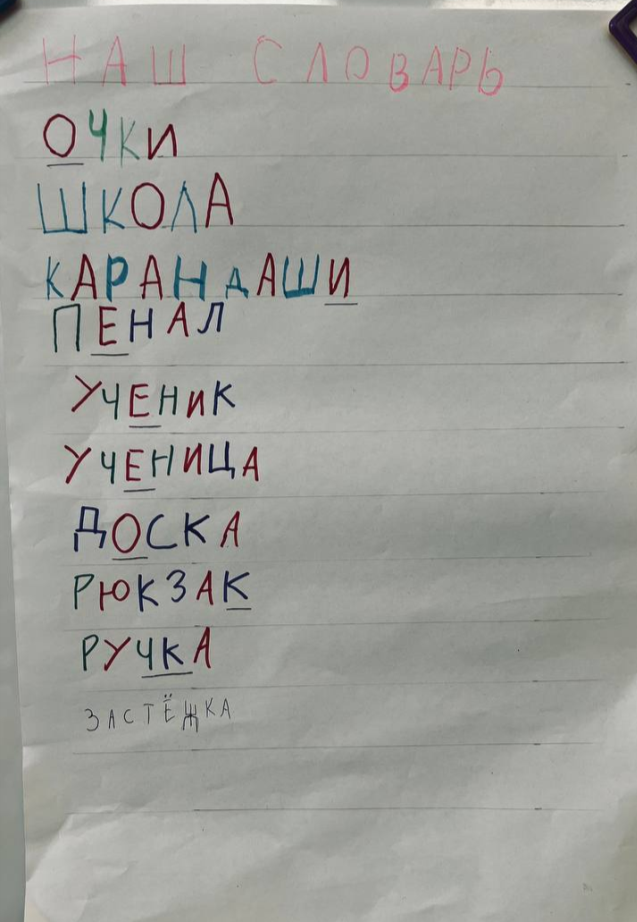 НАШ СЛОВАРЬ
ОЧКИ
ШКОЛА
КАРАНДАШИ
ПЕНАЛ
УЧЕНИК
УЧЕНИЦА
ДОСКА
РЮКЗАК
РУЧКА
ЗАСТЁЖКА